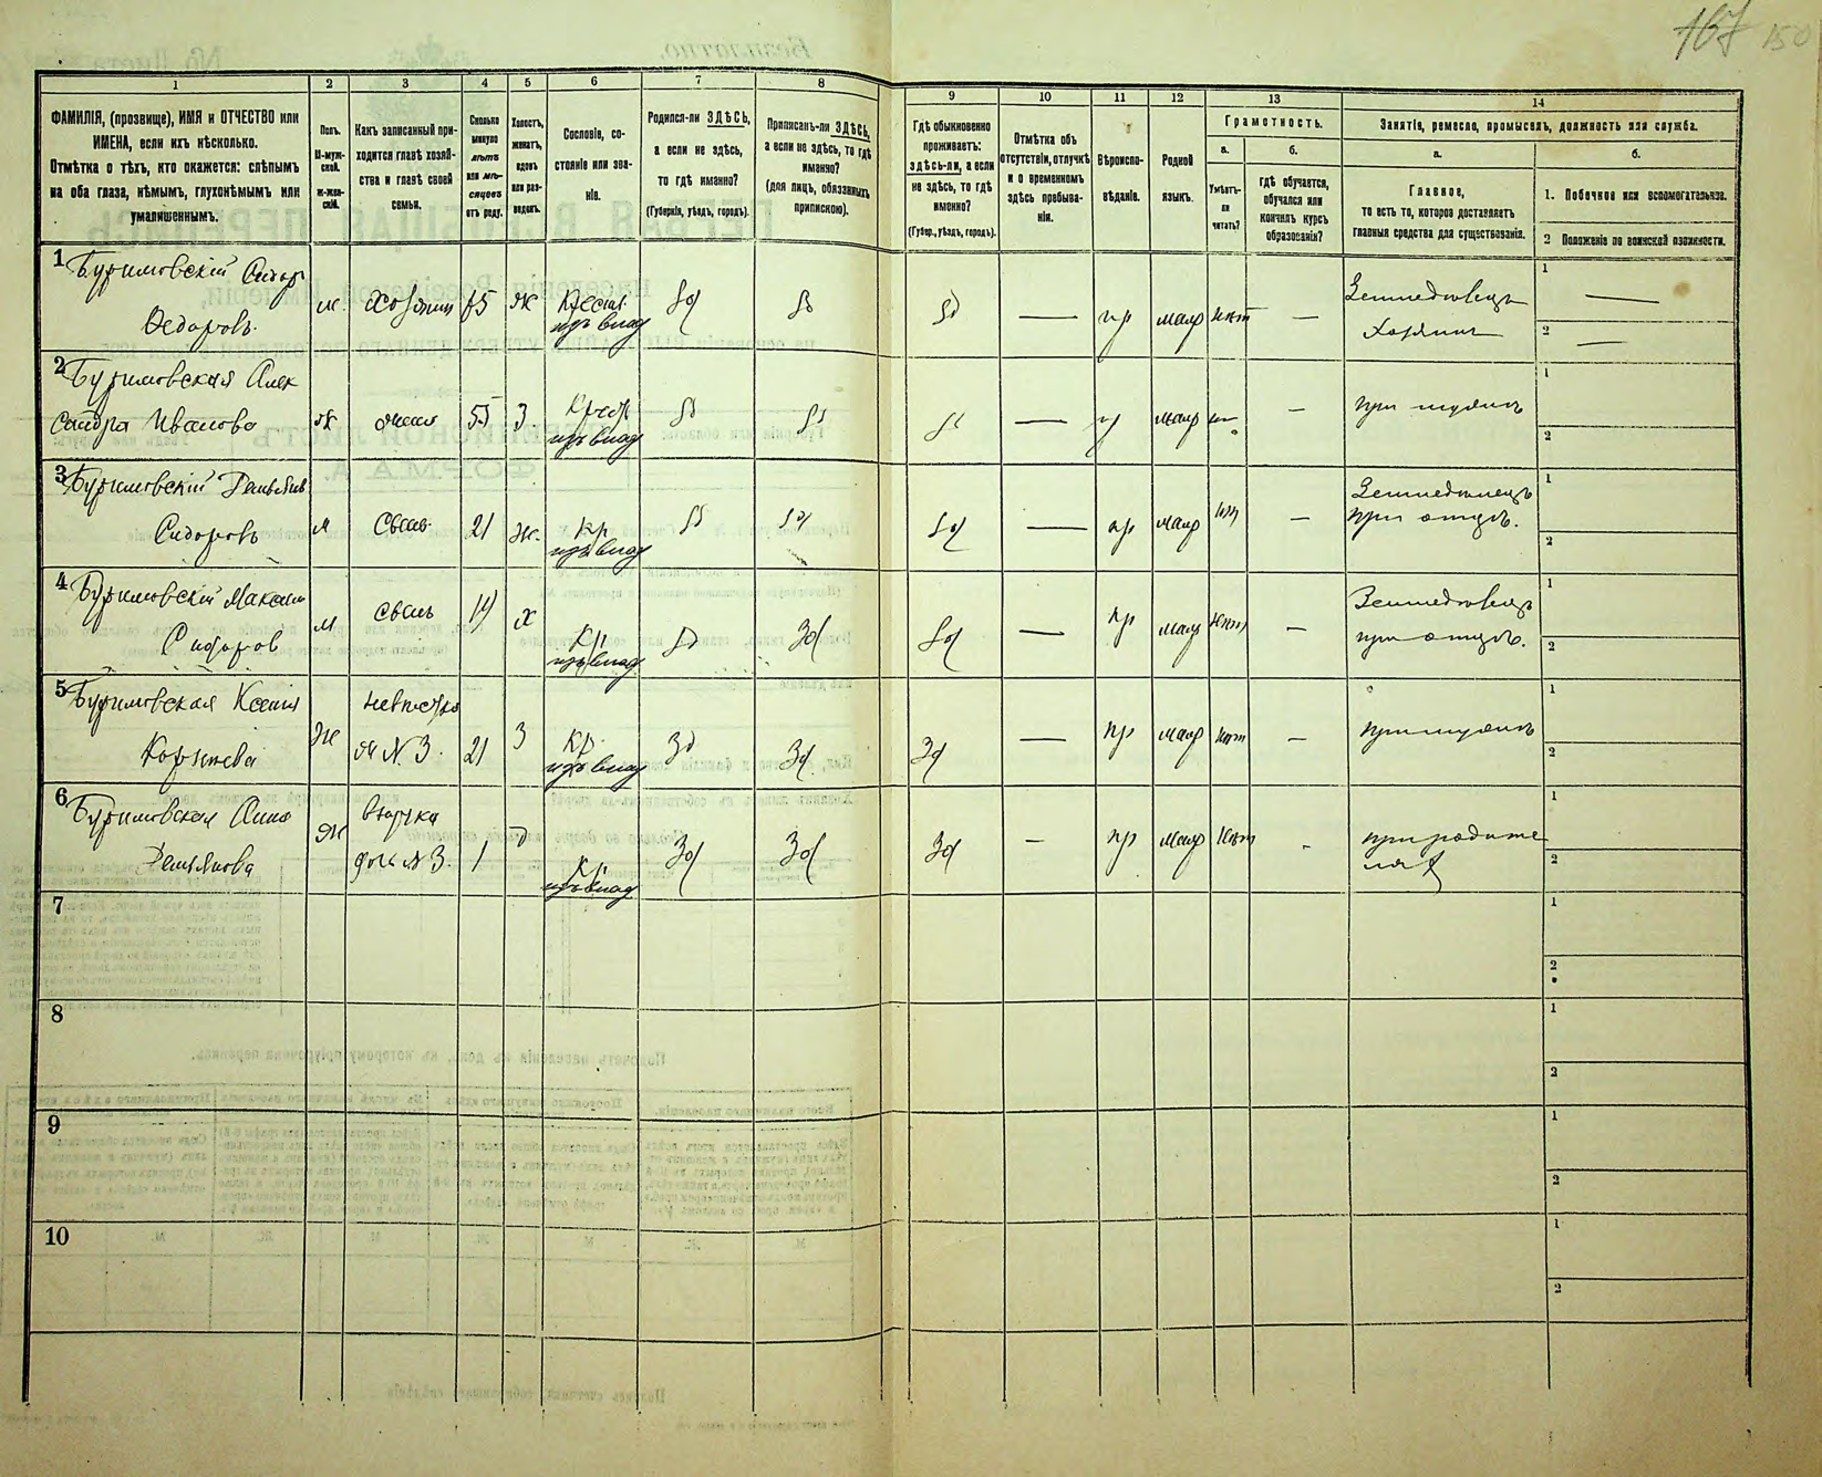 167 150
1 2 3 4 5 6 7 8 9 10 11 12 13 14
ФАМИЛІЯ, (прозвище), ИМЯ и ОТЧЕСТВО или
ИМЕНА, если ихъ нѣсколько.
Отмѣтка о тѣхъ, кто окажется: слѣпымъ
на оба глаза, нѣмымъ, глухонѣмымъ или
умалишеннымъ.
Полъ.
М-муж-
ской.
Ж-жен-
скій.
Какъ записанный при-
ходится главѣ хозяй-
ства и главѣ своей
семьи.
Сколько
минуло
лѣтъ
или мѣ-
сяцевъ
отъ роду.
Холостъ,
женатъ,
вдовъ
или раз-
веденъ.
Сословіе, со-
стояніе или зва-
ніе.
Родился-ли ЗДѢСЬ,
а если не здѣсь,
то гдѣ именно?
(Губернія, уѣздъ, городъ).
Приписанъ-ли ЗДѢСЬ,
а если не здѣсь, то гдѣ
именно?
(для лицъ, обязанныхъ
припискою).
Гдѣ обыкновенно
проживаетъ:
здѣсь-ли, а если
не здѣсь, то гдѣ
именно?
(Губер., уѣздъ, городъ).
Отмѣтка объ
отсутствіи, отлучкѣ
и о временномъ
здѣсь пребыва-
ніи.
Вѣроиспо-
вѣданіе.
Родной
языкъ.
Грамотность.
а.
Умѣетъ-
ли
читать?
б.
гдѣ обучается,
обучался или
кончилъ курсъ
образованія?
Занятіе, ремесло, промыселъ, должность или служба.
а.
Главное,
то есть то, которое доставляетъ
главныя средства для существованія.
б.
1. Побочное или вспомогательное.
2 Положеніе по воинской повинности.
1 Буримовскій Сидор
Ѳедоровъ.
м. хозяинъ 65 ж Крестьян.
изъ влад Зд Зд Зд — пр малор нѣт — Земледѣлецъ
Хозяинъ 1 —
2 —
2 Буримовская Алек
сандра Иванова ж жена 55 З. Крест
изъ влад Зд Зд Зд — пр малор — при мужѣ 1
2
3 Буримовскій Демьянъ
Сидоровъ м сынъ 21 ж. Кр
изъ влад Зд Зд Зд — пр малор нѣт — Земледѣлецъ
при отцѣ. 1
2
4 Буримовскій Максим
Сидоров м сынъ х Кр
изъ влад Зд Зд Зд — пр малор нѣт — Земледѣлецъ
при отцѣ. 1
2
5 Буримовская Ксенія
Корнѣева ж невѣстка
ж N 3. 21 З Кр.
изъ влад Зд Зд Зд — пр малор нѣт — при мужѣ 1
2
6 Буримовская Анна
Демьянова ж внучка
дочь N 3. 1 Кр
изъ влад Зд Зд Зд — пр малор нѣт - при родите
лях 1
2
7 1
2
8 1
2
9 1
2
10 1
2